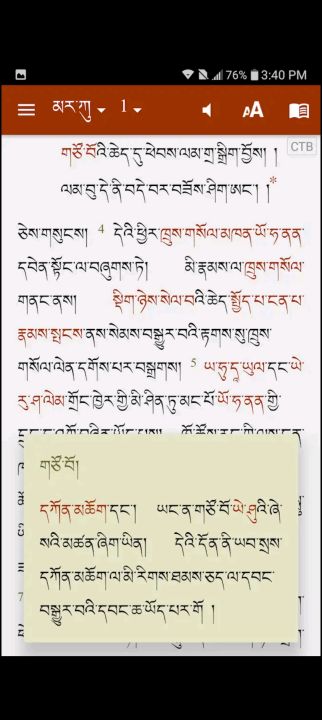 76% 3:40 PM
མར་ཀུ 1 AA
CTB
གཙོ་བོའི་ཆེད་དུ་ཕེབས་ལམ་གྲ་སྒྲིག་བྱོས། །
ལམ་བུ་དེ་ནི་བདེ་བར་བཟོས་ཤིག་ཨང་། །*
ཅེས་གསུངས། 4 དེའི་ཕྱིར་ཁྲུས་གསོལ་མཁན་ཡོ་ཧ་ནན་
དབེན་སྟོང་ལ་བཞུགས་ཏེ། མི་རྣམས་ལ་ཁྲུས་གསོལ་
གནང་ནས། སྡིག་ཉེས་སེལ་བའི་ཆེད་སྤྱོད་པ་ངན་པ་
རྣམས་སྤངས་ནས་སེམས་བསྒྱུར་བའི་རྟགས་སུ་ཁྲུས་
གསོལ་ལེན་དགོས་པར་བསྒྲགས། 5 ཡ་ཧུ་དཱ་ཡུལ་དང་ཡེ་
རུ་ཤ་ལེམ་གྲོང་ཁྱེར་གྱི་མི་ཤིན་ཏུ་མང་པོ་ཡོ་ཧ་ནན་གྱི་
གཙོ་བོ།
དཀོན་མཆོག་དང་། ཡང་ན་གཙོ་བོ་ཡེ་ཤུའི་ཞེ་
སའི་མཚན་ཞིག་ཡིན། དེའི་དོན་ནི་ཡབ་སྲས་
དཀོན་མཆོག་ལ་མི་རིགས་ཐམས་ཅད་ལ་དབང་
བསྒྱུར་བའི་དབང་ཆ་ཡོད་པར་གོ །
7